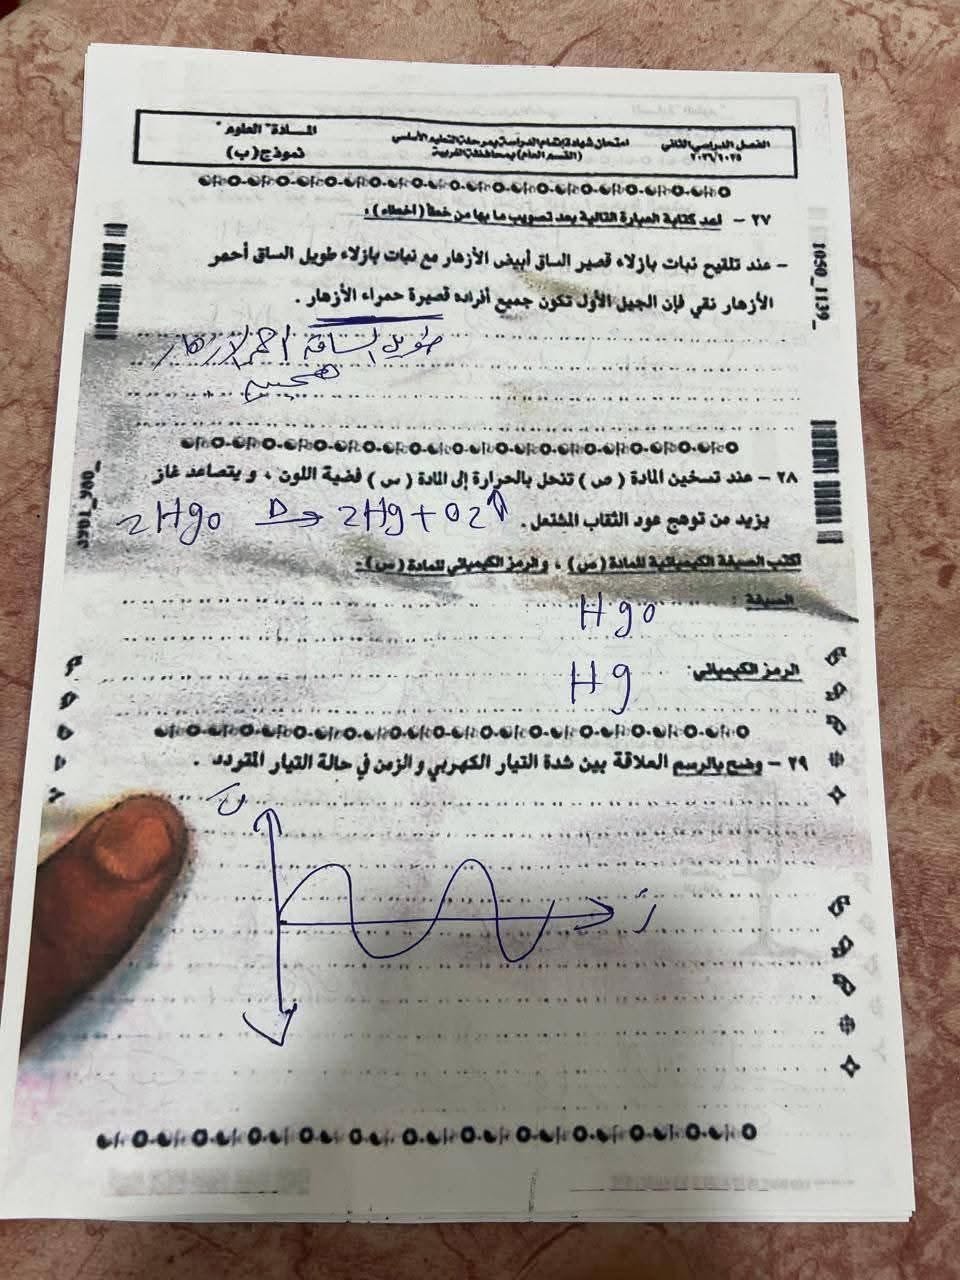 الفصل الدراسي الثاني
٢٠٢٦/٢٠٢٥
امتحان شهادة إتمام الدراسة بمرحلة التعليم الأساسي
(القسم العام) بمحافظة الغربية
المادة "العلوم"
نموذج (ب)
٢٧ - أعد كتابة العبارة التالية بعد تصويب ما بها من خطأ (أخطاء) :
- عند تلقيح نبات بازلاء قصير الساق أبيض الأزهار مع نبات بازلاء طويل الساق أحمر
الأزهار نقي فإن الجيل الأول تكون جميع أفراده قصيرة حمراء الأزهار .
طويل الساق احمر الازهار
هجين
٢٨ - عند تسخين المادة ( ص ) تنحل بالحرارة إلى المادة ( س ) فضية اللون ، و يتصاعد غاز
يزيد من توهج عود الثقاب المشتعل .
2HgO Δ→ 2Hg + O2↑
اكتب الصيغة الكيميائية للمادة ( ص ) ، والرمز الكيميائي للمادة ( س ) :-
الصيغة :
HgO
الرمز الكيميائي:
Hg
٢٩ - وضح بالرسم العلاقة بين شدة التيار الكهربي والزمن في حالة التيار المتردد .
ت
ز
1050_1139_